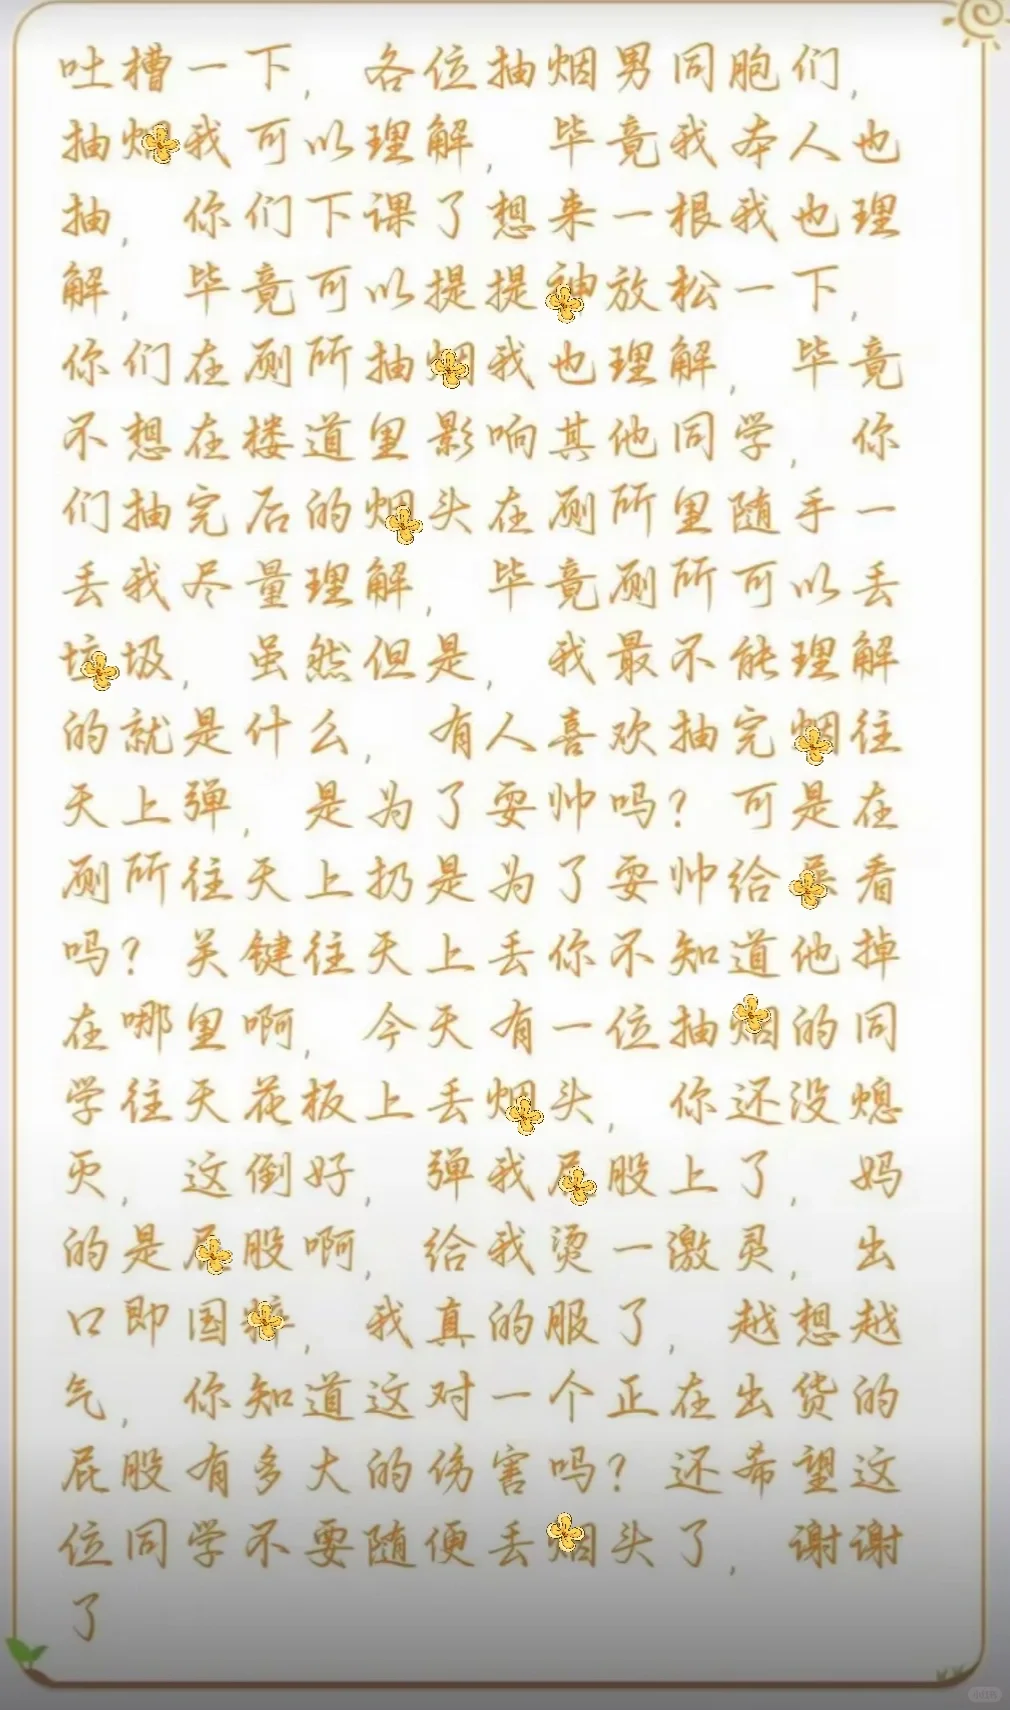 吐槽一下，各位抽烟男同胞们，
抽烟我可以理解，毕竟我本人也
抽，你们下课了想来一根我也理
解，毕竟可以提提神放松一下，
你们在厕所抽烟我也理解，毕竟
不想在楼道里影响其他同学，你
们抽完后的烟头在厕所里随手一
丢我尽量理解，毕竟厕所可以丢
垃圾，虽然但是，我最不能理解
的就是什么，有人喜欢抽完烟往
天上弹，是为了耍帅吗？可是在
厕所往天上扔是为了耍帅给看
吗？关键往天上丢你不知道他掉
在哪里啊，今天有一位抽烟的同
学往天花板上丢烟头，你还没熄
灭，这倒好，弹我屁股上了，妈
的是屁股啊，给我烫一激灵，出
口即国粹，我真的服了，越想越
气，你知道这对一个正在出货的
屁股有多大的伤害吗？还希望这
位同学不要随便丢烟头了，谢谢
了